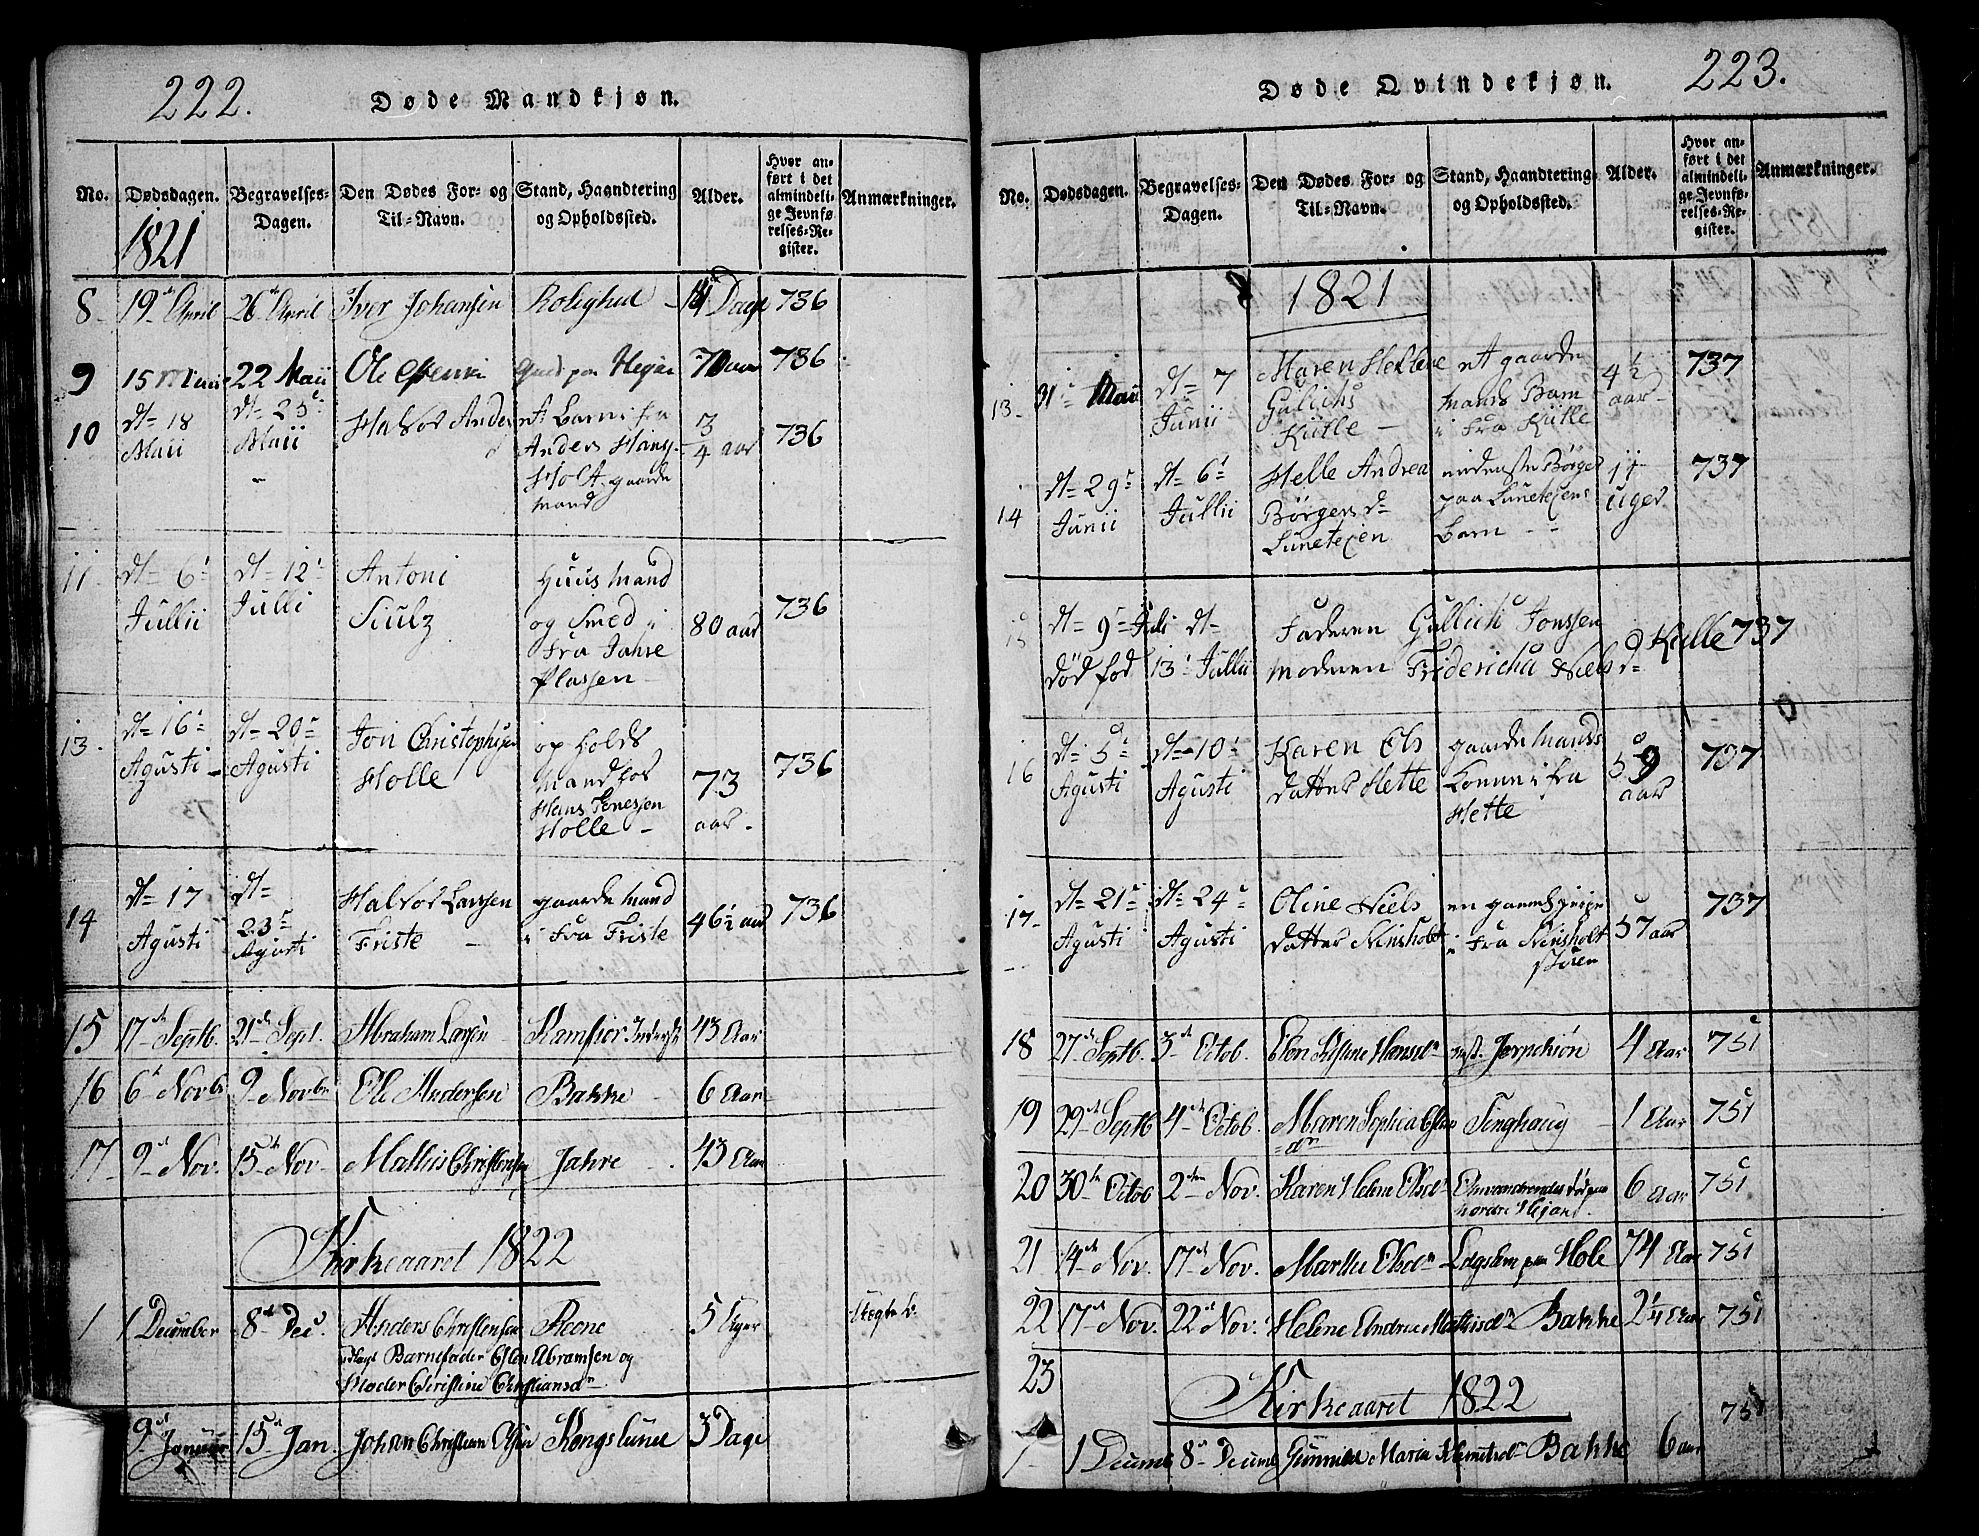 222.
Døde Mandkjøn.
No. Dødsdagen. Begravelses-Dagen. Den Dødes For- og Til-Navn. Stand, Haandtering og Opholdssted. Alder. Hvor anført i det almindelige Jevnførelses-Register. Anmærkninger.
1821
8 19 April 26 April Iver Johansen Rolighed 14 Dage 736
9 15 Maii 22 Maii Ole 70 aar 736
10 dt= 18 Maii dt= 25 Maii Halvor Anders et Barn i fra Anders Hans Holt gaardemand 3/4 aar 736
11 dt= 6 Jullii dt= 12 Julli Antoni Sculz Huusmand og Smed i Fra Jahre Plassen 80 aar 736
13 dt= 16 Agusti dt= 20 Agusti Jon Christophsen Holle op holds mand hos Hans Jonessen Holle 73 aar 736
14 dt= 17 Agusti dt= 23 Agusti Halvor Larssen Friste gaardemand i Fra Friste 46½ aar 736
15 17 Septb. 21 Sept. Abraham Larsen 43 Aar
16 6 Novbr 9 Novbr Ole Andersen Bakke 6 Aar
17 9 Nov. 15 Nov Mathis Christensen Jahre 43 Aar
Kirkeaaret 1822
1 1 December 8 Dec. Anders Christensen Reene 5 Uger
Barnefader Esten Abramsen og
Moder Christine Christiansd
9 Januar 15 Jan. Johan Christian Olsen Kongslund 3 Dage
223.
Døde Qvindekjøn.
No. Dødsdagen. Begravelses-Dagen. Den Dødes For- og Til-Navn. Stand, Haandtering og Opholdssted. Alder. Hvor anført i det almindelige Jevnførelses-Register. Anmærkninger.
1821
13 31 Maii dt= 7 Junii Maren Hellene Gulichs Kulle et gaardemands Barn i Fra Kulle 4½ aar 737
14 dt= 29 Junii dt= 6 Jullii Helle Andrea Børgers d= Lunetejen Børger paa Lunetejens Barn 11 uger 737
15 dt= 9 Juli død fød dt= 13 Jullii Faderen Gullich Jonssen moderen Fridericha Niels d= Kulle 737
16 dt= 5 Agusti dt= 10 Agusti Karen Ols datter Hette gaardemands Konne i fra Hette 59 aar 737
17 dt= 21 Agusti dt= 24 Agusti Oline Niels datter i Fra 57 aar 737
18 27 Septb. 3 Octob. 4 Aar 751
19 29 Septb 4 Octob. Maren Sophia Tinghaug 1 Aar 751
20 30 Octob 2 Nov. Karen Helene Olsd 6 Aar 751
21 14 Nov. 17 Nov. Marthe Olsd Lægslem paa Hole 74 Aar 751
22 17 Nov. 22 Nov. Helene Andrea Mathisd Bakke 2¼ Aar 751
23
Kirkeaaret 1822
1 1 Decemb 8 Decemb Gunnild Maria Bakke 6 aar 751